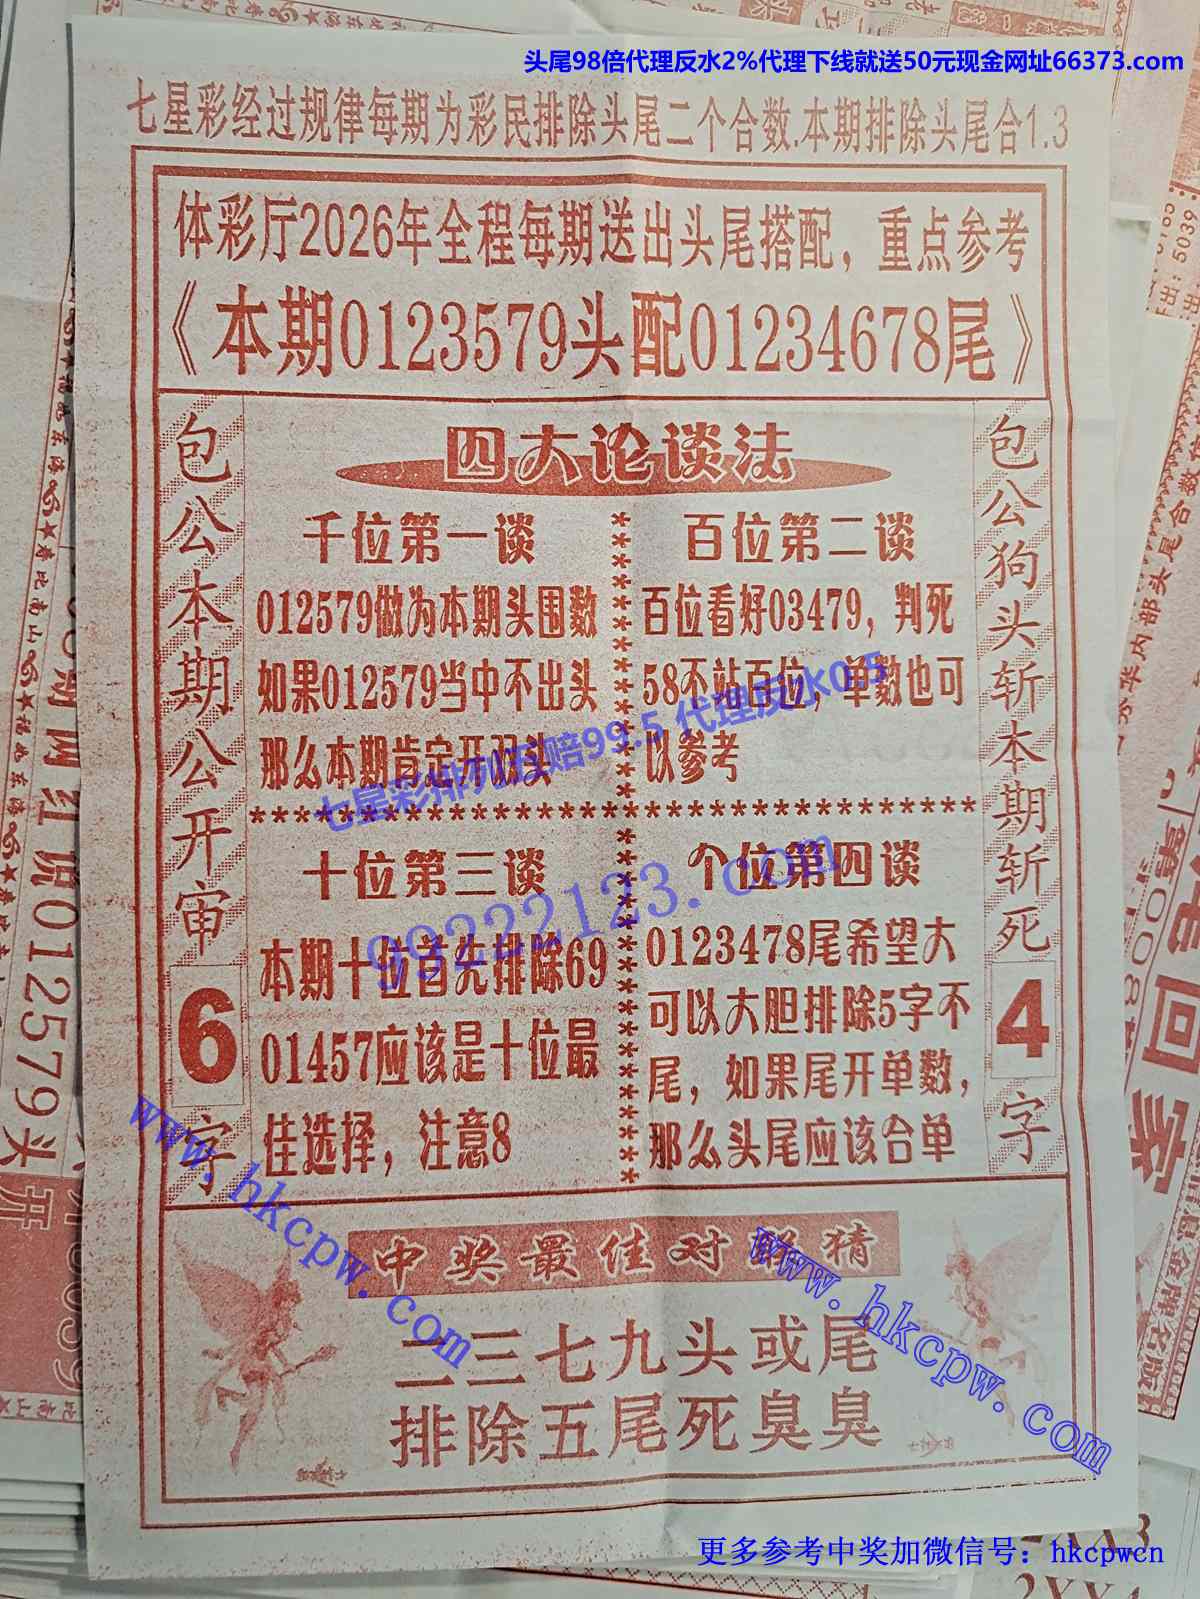 头尾98倍代理反水2%代理下线就送50元现金网址66373.com
七星彩经过规律每期为彩民排除头尾二个合数.本期排除头尾合1.3
体彩厅2026年全程每期送出头尾搭配，重点参考
《本期0123579头配01234678尾》
包公本期公开审6字
四大论谈法
千位第一谈
012579做为本期头围数
如果012579当中不出头
那么本期肯定开双头
百位第二谈
百位看好03479，判死
58不站百位，单数也可
以参考
十位第三谈
本期十位首先排除69
01457应该是十位最
佳选择，注意8
个位第四谈
0123478尾希望大
可以大胆排除5字不
尾，如果尾开单数，
那么头尾应该合单
包公狗头斩本期斩死4字
七星彩排列五赔99.5 代理反水0.5
99222123.com
www.hkcpw.com
www.hkcpw.com
中奖最佳对联猜
二三七九头或尾
排除五尾死臭臭
更多参考中奖加微信号：hkcpwcn
012579头
开
回家
出：5039
2XX4